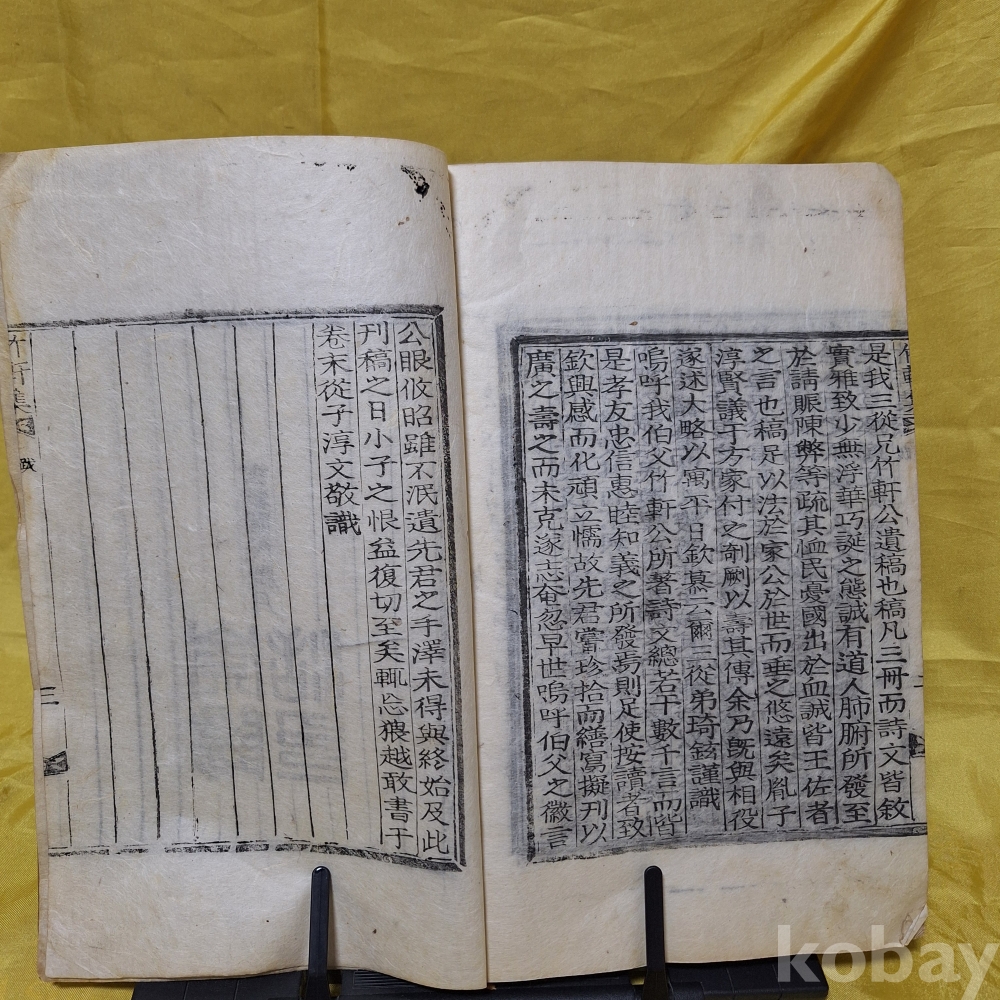 是我三從兄竹軒公遺稿也稿凡三冊而詩文皆敘
實雅致少無浮華巧誕之態誠有道人肺腑所發至
於請賑陳弊等疏其恤民憂國出於血誠皆王佐者
之言也稿足以法於家公於世而垂之悠遠矣胤子
淳賢議于方家付之剞劂以壽其傳余乃旣與相役
家述大略以寓平日欽慕云爾三從弟琦鉉謹識
嗚呼我伯父竹軒公所著詩文總若干數千言而皆
是孝友忠信惠睦知義之所發焉則足使按讀者致
欽興感而化頑立懦故先君嘗珍拾而繕寫擬刊以
廣之壽之而未克遂志奄忽早世嗚呼伯父之徽言
公眼攸昭雖不泯遺先君之手澤未得與終始及此
刊稿之日小子之恨益復切至矣輒忘猥越敢書于
卷末從子淳文敬識
竹軒集
跋
二
kobay